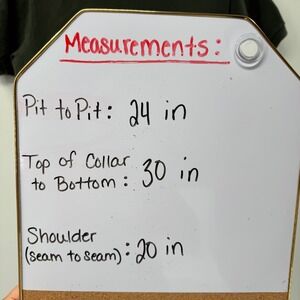 Measurements:
Pit to Pit: 24 in
Top of Collar
to Bottom: 30 in
Shoulder
(seam to seam): 20 in